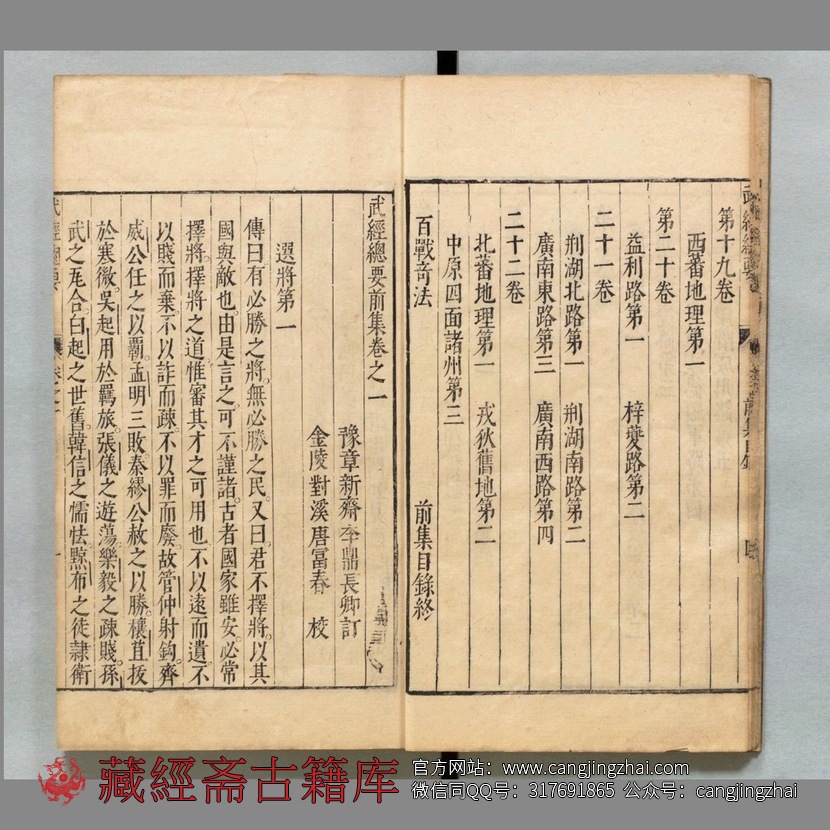 第十九卷
西蕃地理第一
第二十卷
益利路第一　梓夔路第二
二十一卷
荆湖北路第一　荆湖南路第二
廣南東路第三　廣南西路第四
二十二卷
北蕃地理第一　戎狄舊地第二
中原四面諸州第三
百戰奇法　前集目錄終
武經總要前集卷之一
豫章新齋李鼎長卿訂
金陵對溪唐富春　校
選將第一
傳曰有必勝之將無必勝之民又曰君不擇將以其
國與敵也由是言之可不謹諸古者國家雖安必常
擇將擇將之道惟審其才之可用也不以遠而遺不
以賤而棄不以詐而疎不以罪而廢故管仲射鈎齊
威公任之以霸孟明三敗秦繆公赦之以勝穰苴拔
於寒微吳起用於羈旅張儀之遊蕩樂毅之疎賤孫
武之瓦合白起之世舊韓信之懦怯黥布之徒隷衛
武經總要
藏經斋古籍库
官方网站：www.cangjingzhai.com
微信同QQ号：317691865 公众号：cangjingzhai